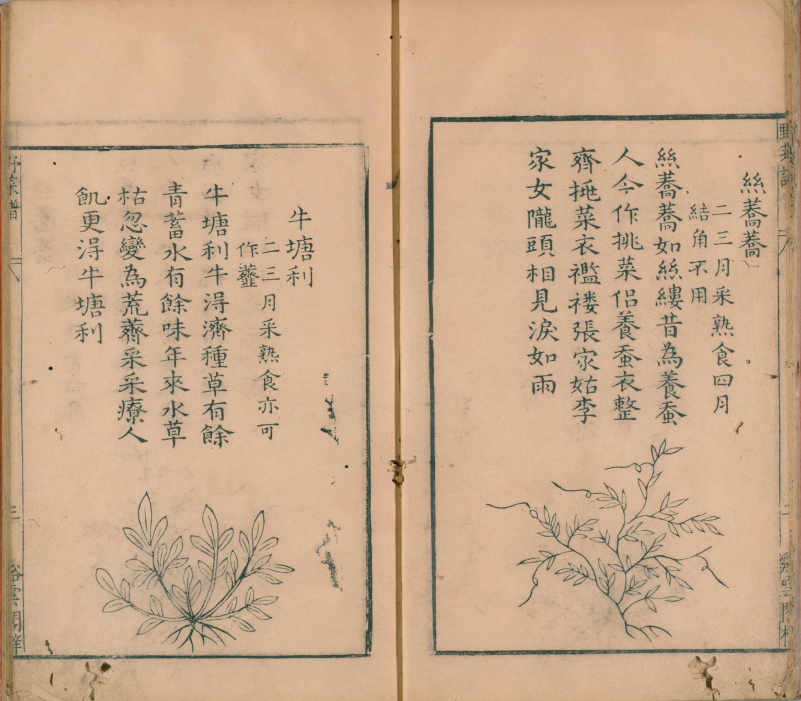 絲蕎蕎
二三月采熟食四月
結角不用
絲蕎蕎如絲縷昔為養蚕
人今作挑菜侣養蚕衣整
齊挑菜衣襤褸張家姑李
家女隴頭相見淚如雨
牛塘利
二三月采熟食亦可
作虀
牛塘利牛淂濟種草有餘
青蓄水有餘味年來水草
枯忽變為荒薺采采療人
飢更淂牛塘利
野菜譜
三